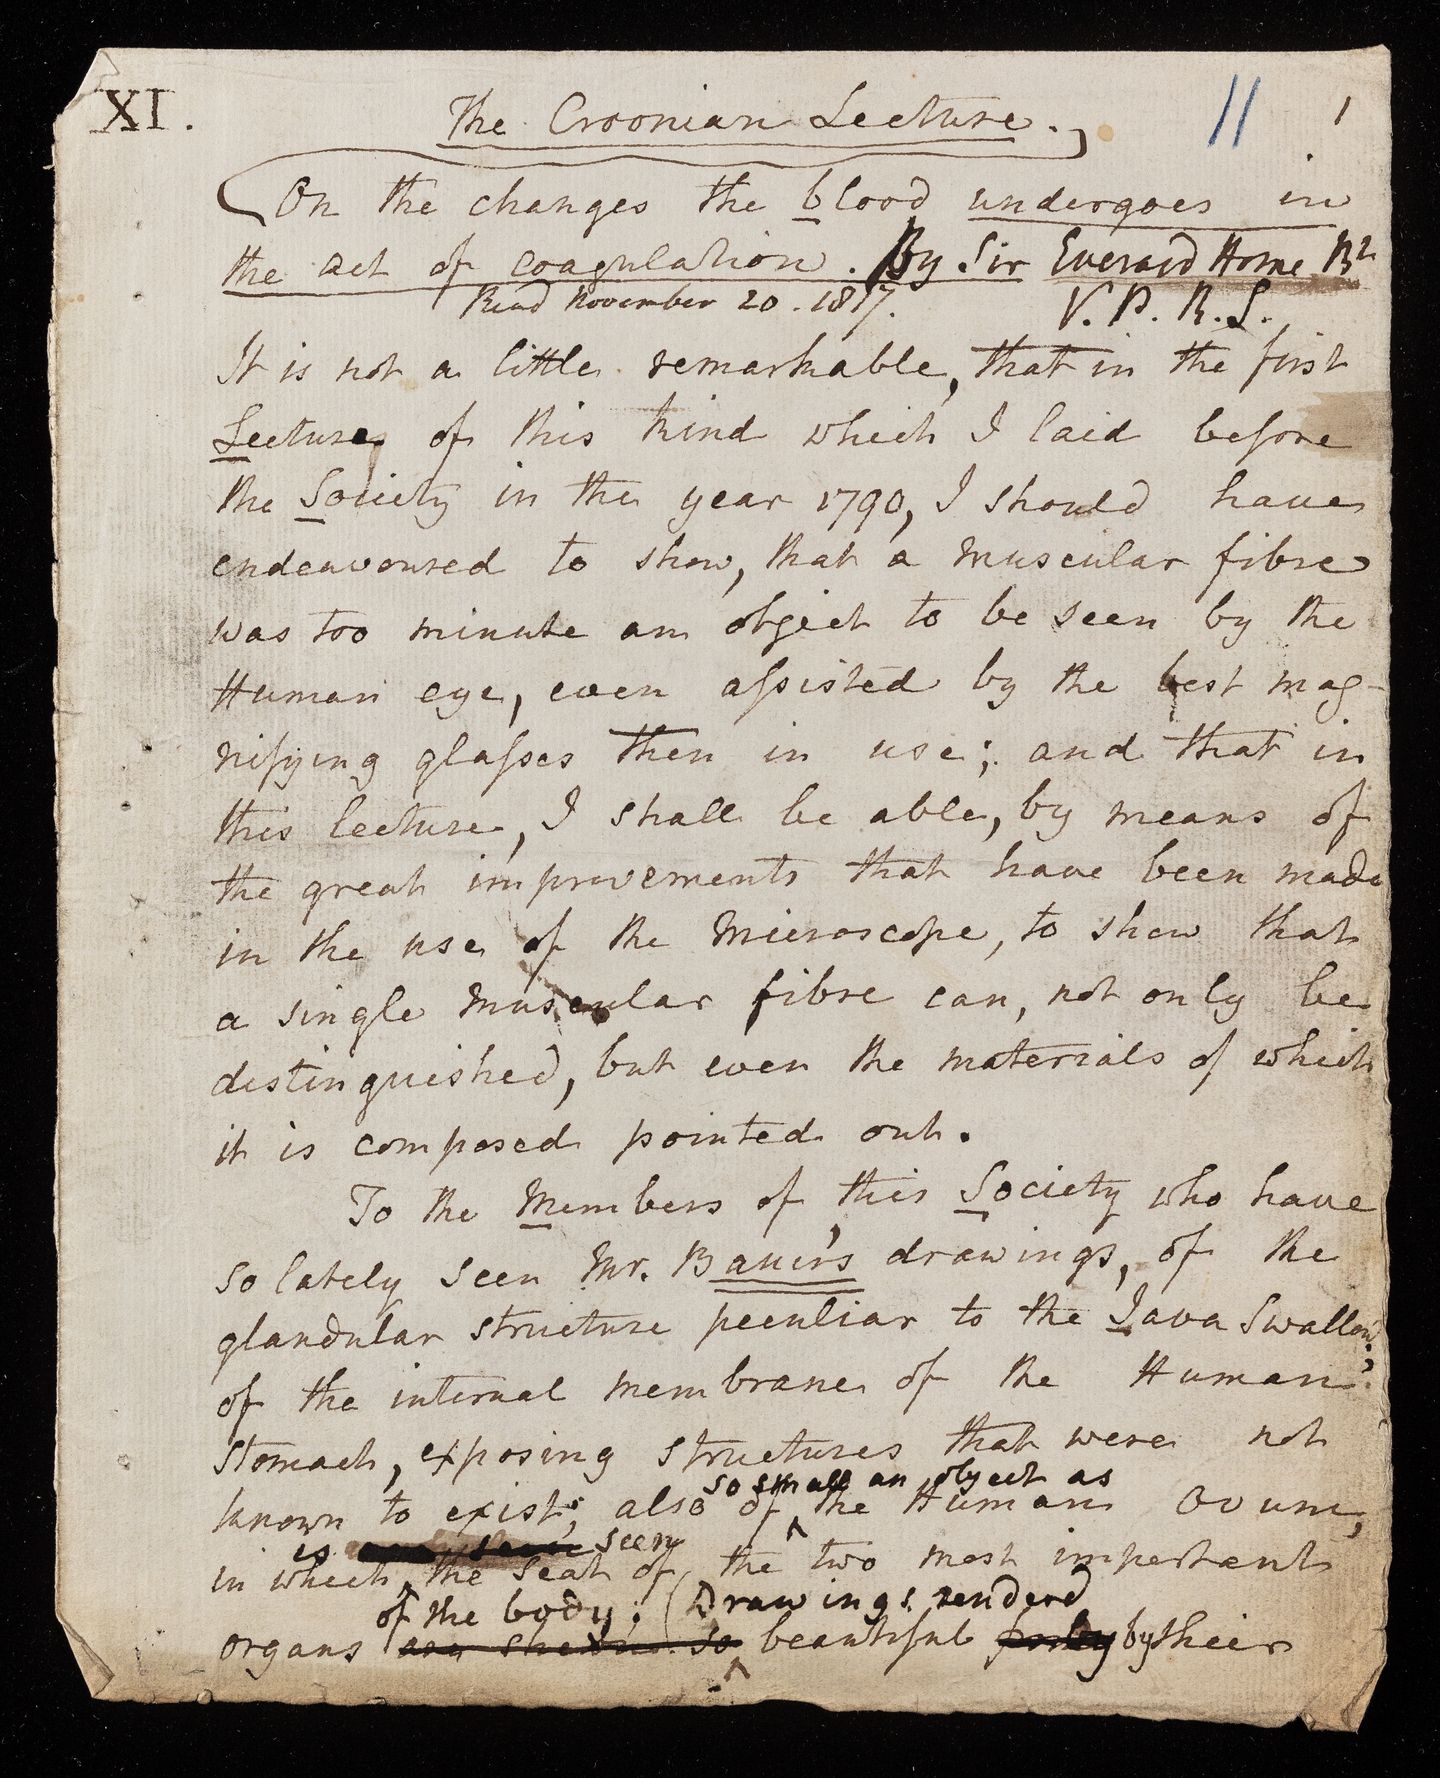 XI.
The Croonian Lecture.
11
1
On the changes the blood undergoes in
the act of coagulation. By Sir Everard Home Bt
Read November 20. 1817.
V. P. R. S.
It is not a little remarkable, that in the first
Lecture of this kind which I laid before
the Society in the year 1790, I should have
endeavoured to show, that a muscular fibre
was too minute an object to be seen by the
Human eye, even assisted by the best mag-
nifying glasses then in use; and that in
this lecture, I shall be able, by means of
the great improvements that have been made
in the use of the Microscope, to shew that
a single muscular fibre can, not only be
distinguished, but even the materials of which
it is composed pointed out.
To the Members of this Society who have
so lately seen Mr. Bauer's drawings, of the
glandular structure peculiar to the Java Swallow;
of the internal membrane of the Human
stomach, exposing structures that were not
so small an object as
known to exist; also of the Human Ovum,
is seen
in which the seat of the two most important
of the body; (Drawings renderd
organs are shewn so beautiful by their